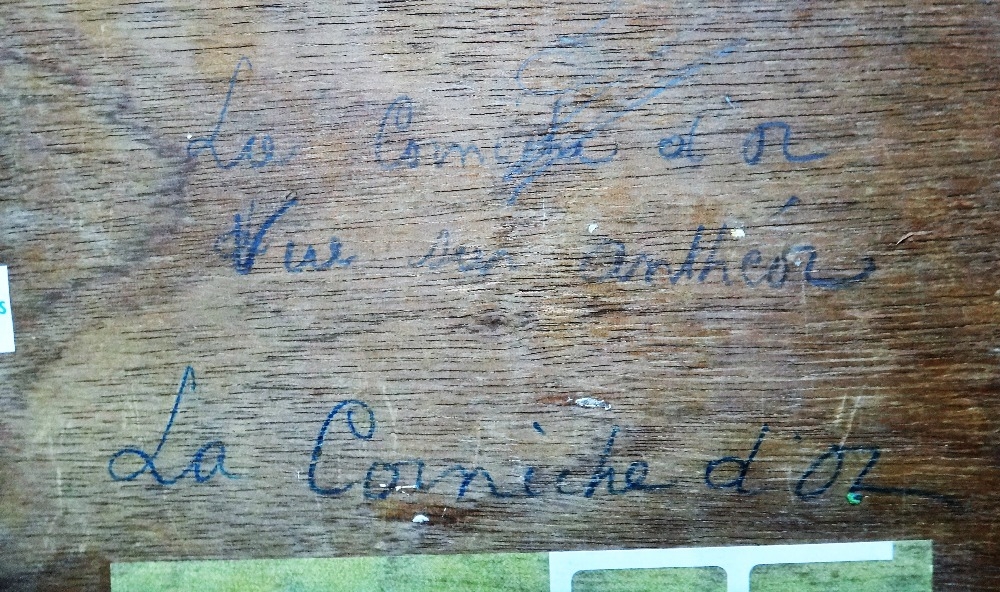 La Corniche d'or
Vue sur anthéor
La Corniche d'or
s